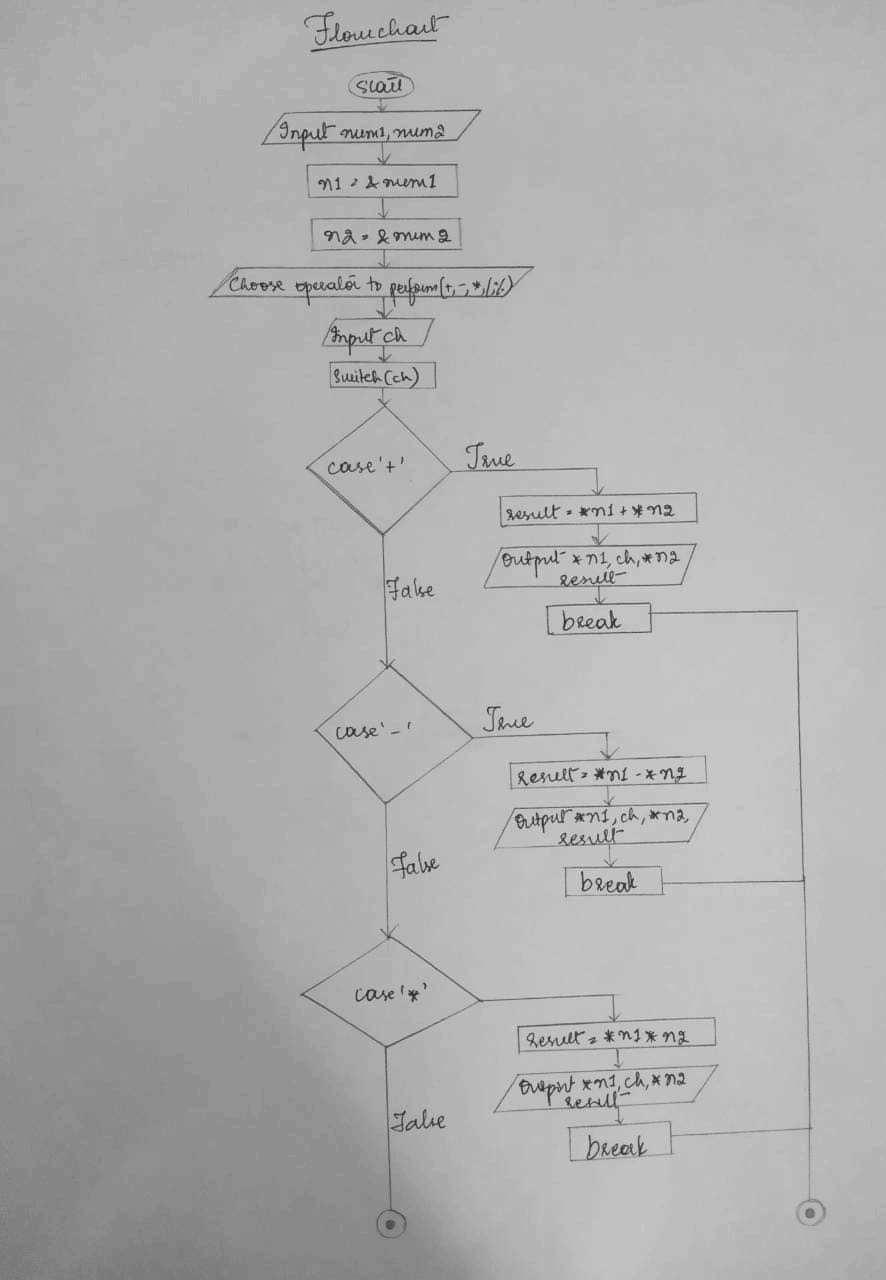 Flowchart
Start
Input num1, num2
n1 = & num1
n2 = & num2
Choose operator to perform (+,-,*,/,%)
Input ch
Switch(ch)
case '+'
True
result = *n1 + *n2
Output *n1, ch, *n2
result
break
False
case '-'
True
Result = *n1 - *n2
Output *n1, ch, *n2,
result
break
False
case '*'
Result = *n1 * n2
Output *n1, ch, *n2
result
break
False